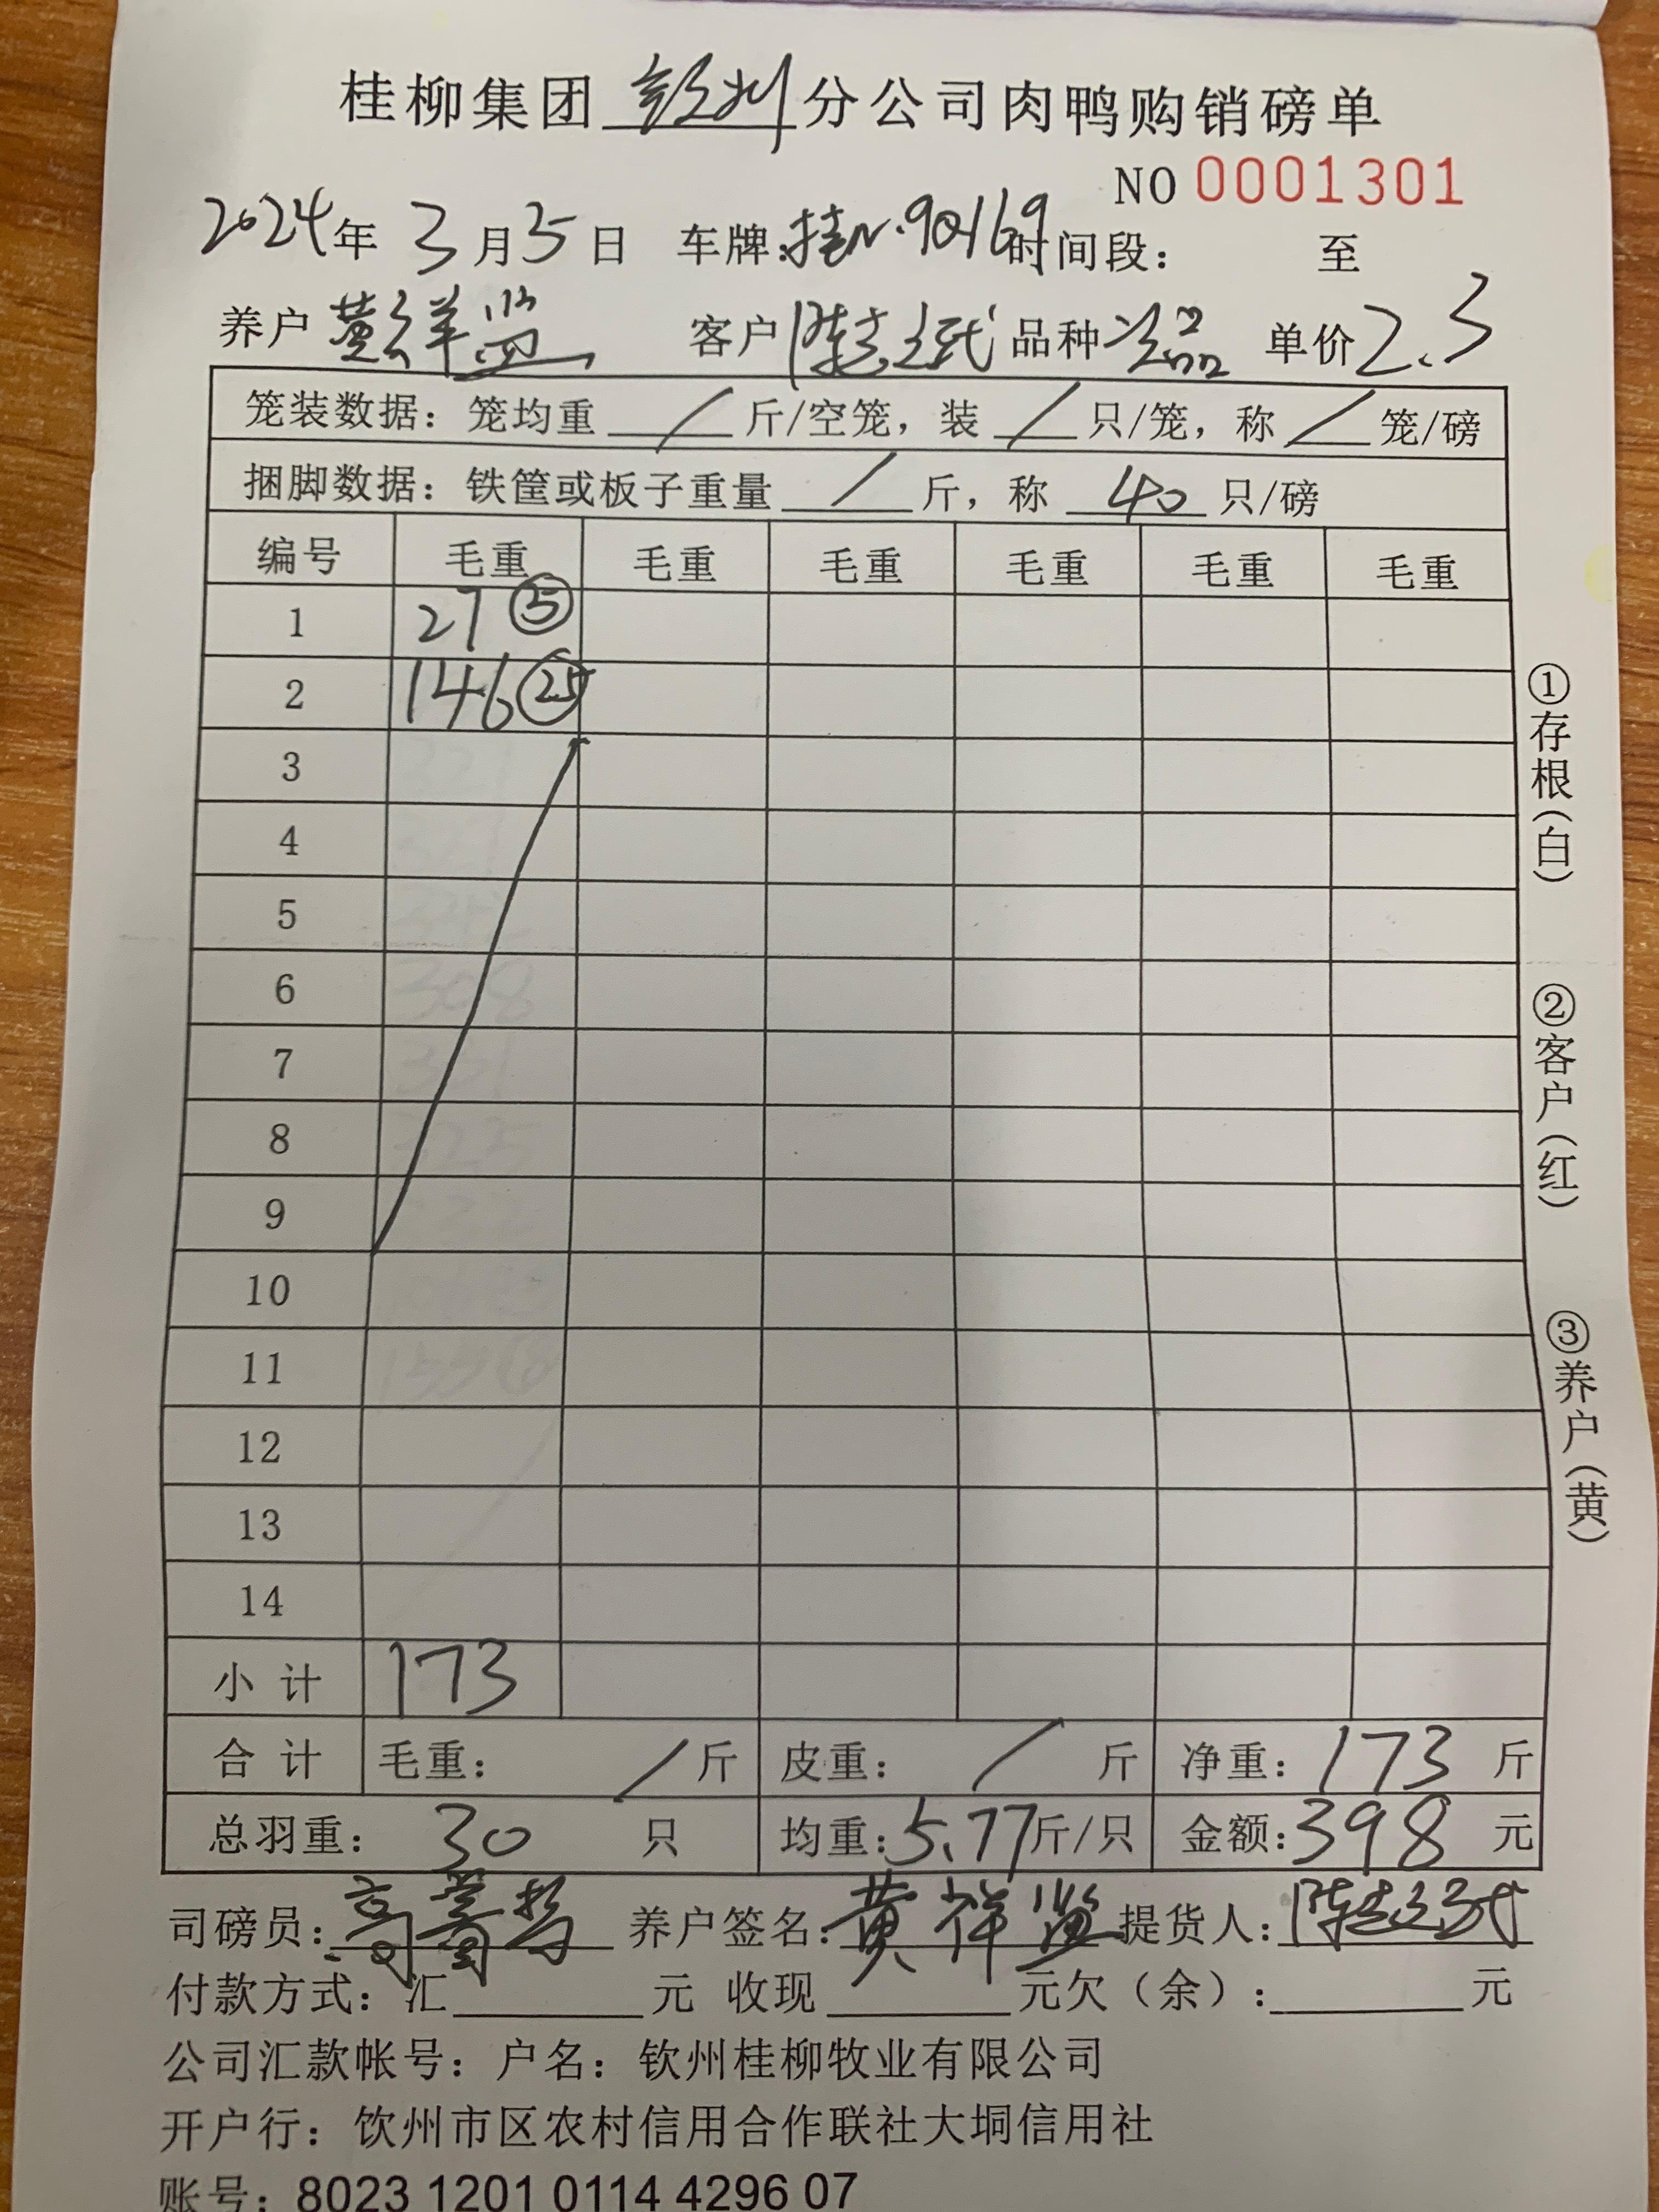 桂柳集团 钦州 分公司肉鸭购销磅单
NO 0001301
2024年 3月5日 车牌:桂N·90169 时间段: 至
养户 黄祥监 客户 陈 品种 次品 单价 2.3
笼装数据:笼均重 / 斤/空笼,装 / 只/笼,称 / 笼/磅
捆脚数据:铁筐或板子重量 / 斤,称 40 只/磅
编号 毛重 毛重 毛重 毛重 毛重 毛重
1 27 ⑤
2 146 ㉕
3
4
5
6
7
8
9
10
11
12
13
14
小计 173
合计 毛重: / 斤 皮重: / 斤 净重:173 斤
总羽重: 30 只 均重:5.77斤/只 金额:398 元
司磅员:高 养户签名:黄祥监 提货人:陈
付款方式:汇 元 收现 元欠(余): 元
公司汇款帐号:户名:钦州桂柳牧业有限公司
开户行:饮州市区农村信用合作联社大垌信用社
账号:8023 1201 0114 4296 07
①存根(白)
②客户(红)
③养户(黄)